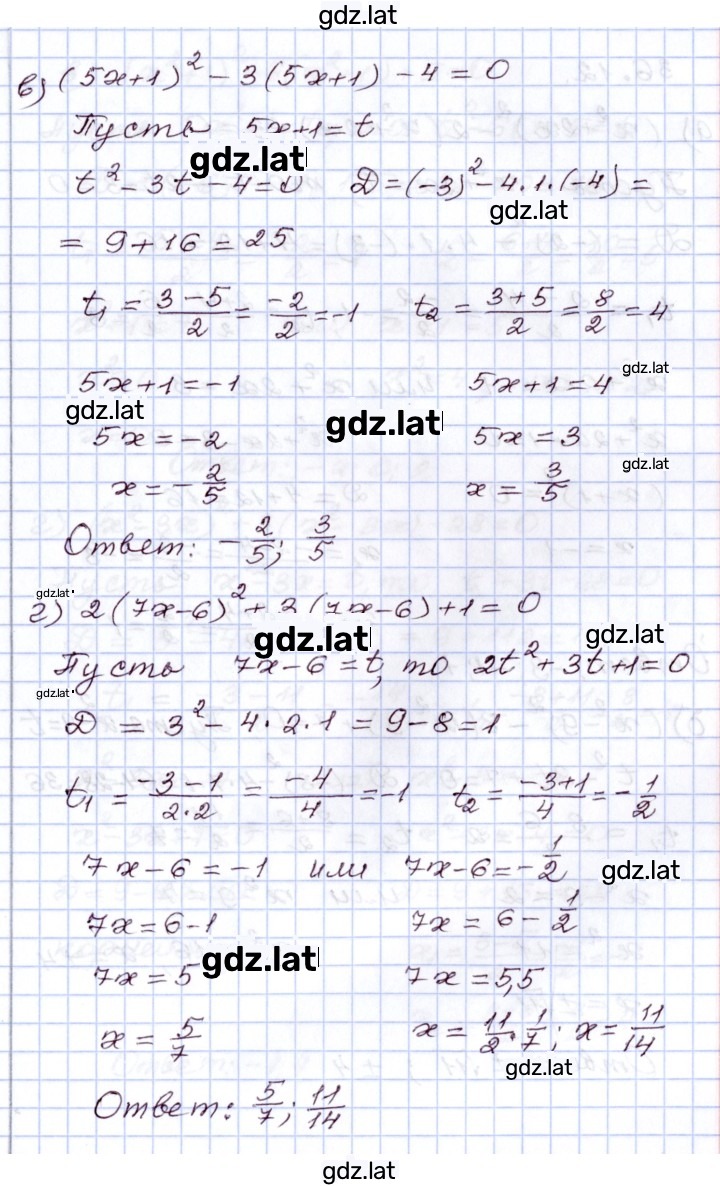 gdz.lat
в) (5x+1)² - 3(5x+1) - 4 = 0
Пусть 5x+1 = t
gdz.lat
t² - 3t - 4 = 0 D = (-3)² - 4·1·(-4) =
gdz.lat
= 9 + 16 = 25
t₁ = (3-5)/2 = -2/2 = -1 t₂ = (3+5)/2 = 8/2 = 4
gdz.lat
5x+1 = -1 5x+1 = 4
gdz.lat gdz.lat
5x = -2 5x = 3
gdz.lat
x = -2/5 x = 3/5
Ответ: -2/5; 3/5
gdz.lat
г) 2(7x-6)² + 3(7x-6) + 1 = 0
gdz.lat gdz.lat
Пусть 7x-6 = t, то 2t² + 3t + 1 = 0
gdz.lat
D = 3² - 4·2·1 = 9 - 8 = 1
t₁ = (-3-1)/(2·2) = -4/4 = -1 t₂ = (-3+1)/4 = -1/2
7x-6 = -1 или 7x-6 = -1/2
gdz.lat
7x = 6-1 7x = 6 - 1/2
gdz.lat
7x = 5 7x = 5,5
x = 5/7 x = 11/2 · 1/7; x = 11/14
gdz.lat
Ответ: 5/7; 11/14
gdz.lat